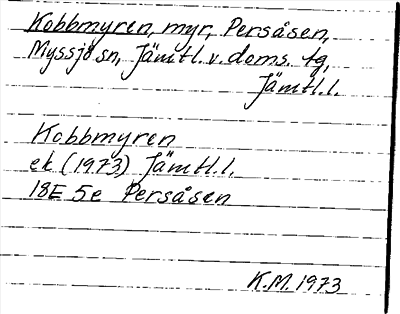 Kobbmyren, myr, Persåsen,
Myssjö sn, Jämtl. v. doms. tg,
Jämtl. l.
Kobbmyren
ek (1973) Jämtl. l.
18E 5e Persåsen
K.M. 1973